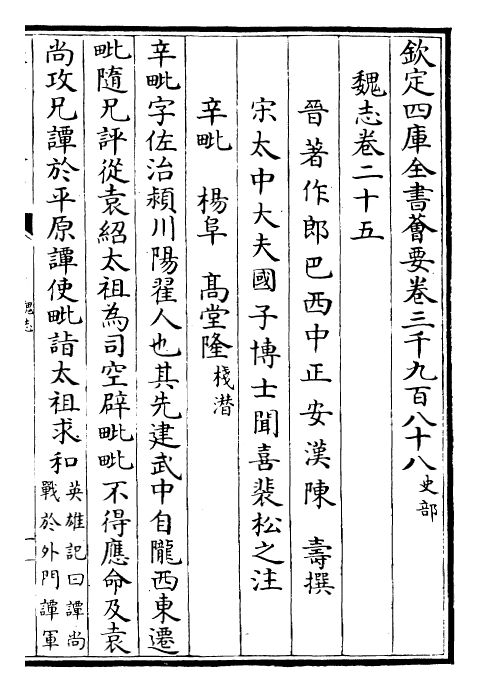 欽定四庫全書薈要卷三千九百八十八史部
魏志卷二十五
晉著作郎巴西中正安漢陳壽撰
宋太中大夫國子博士聞喜裴松之注
辛毗 楊阜 髙堂隆棧潜
辛毗字佐治潁川陽翟人也其先建武中自隴西東遷
毗隨兄評從袁紹太祖為司空辟毗毗不得應命及袁
尚攻兄譚於平原譚使毗詣太祖求和英雄記曰譚尚
戰於外門譚軍
魏志
一